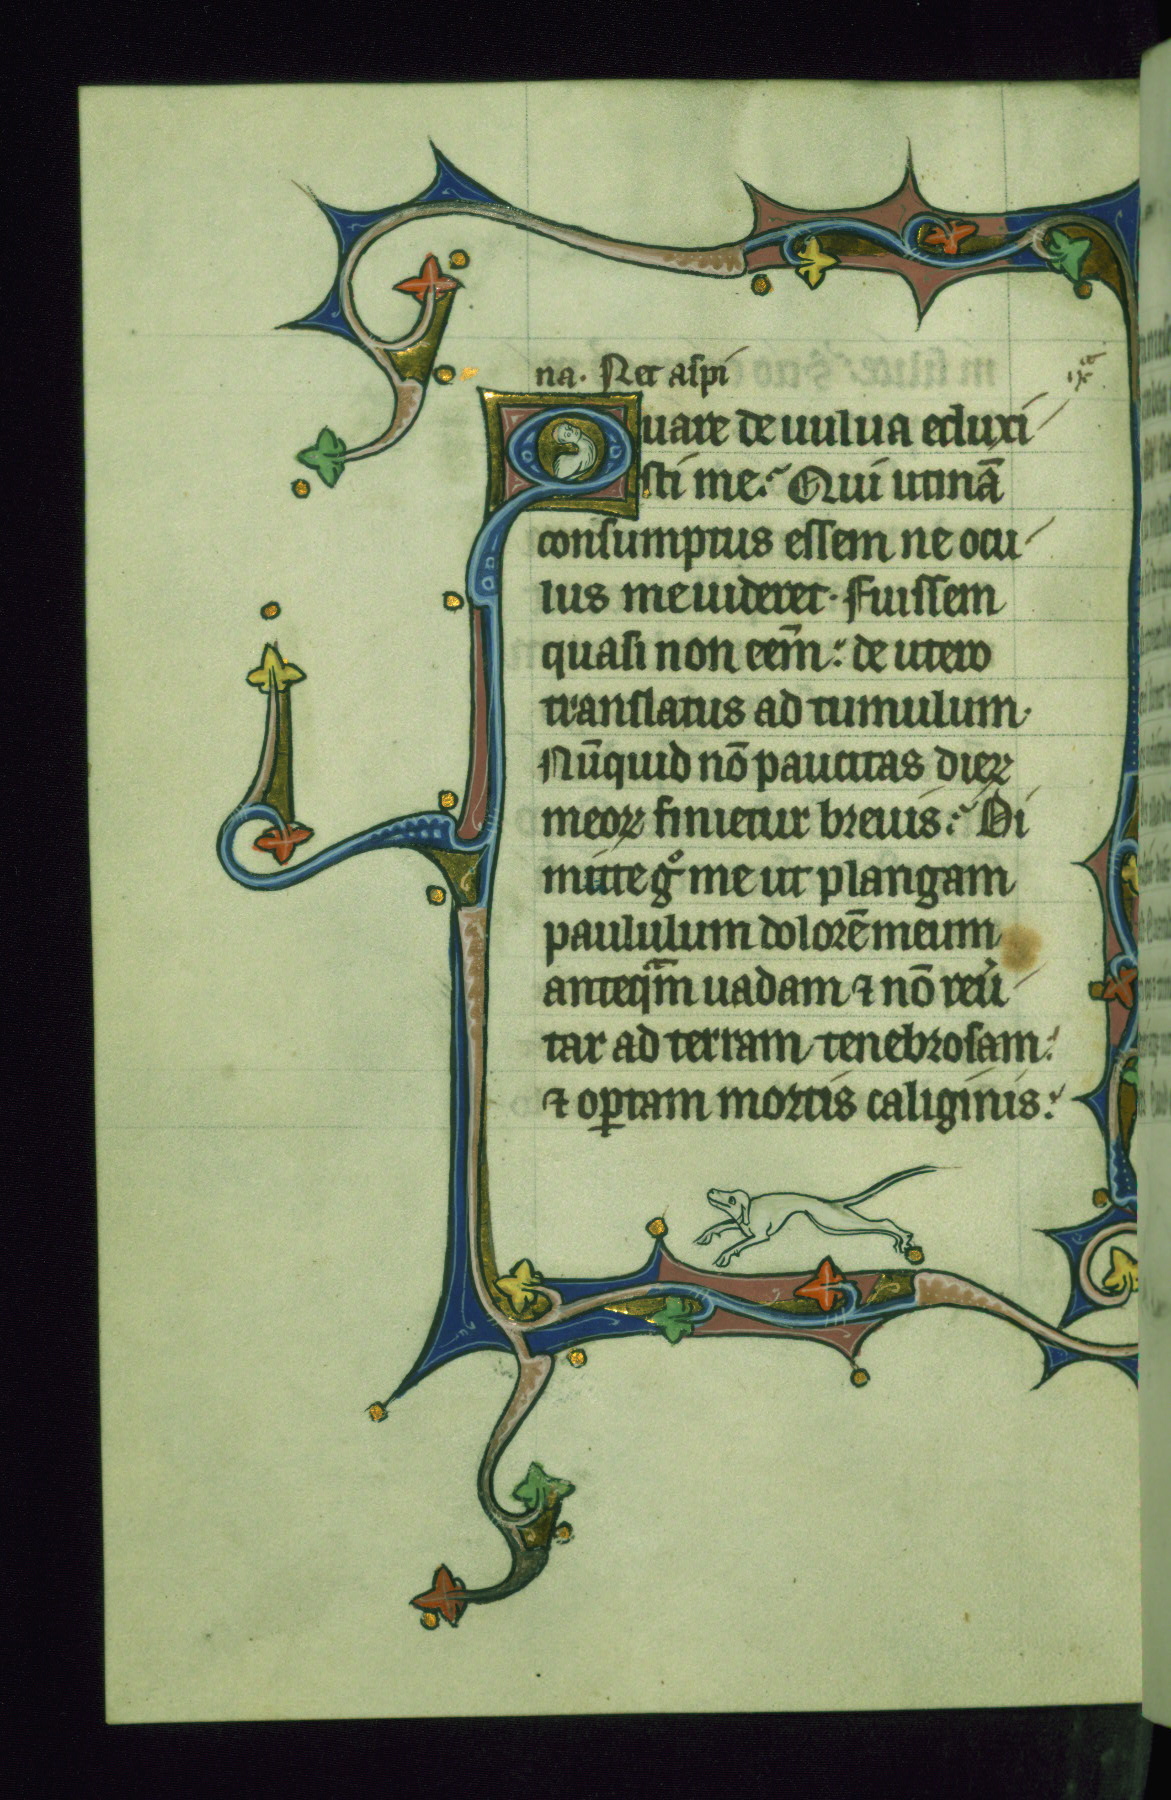 na. Nec aspi
Quare de uulua eduxi
sti me. Qui utinā
consumptus essem ne ocu
lus me uideret. Fuissem
quasi non eēm: de utero
translatus ad tumulum.
Nūquid nō paucitas dieꝝ
meoꝝ finietur breuis: Di
mitte gͦ me ut plangam
paululum dolorē meum
anteqᷓm uadam ⁊ nō reū
tar ad terram tenebrosam:
⁊ op̄tam mortis caliginis: